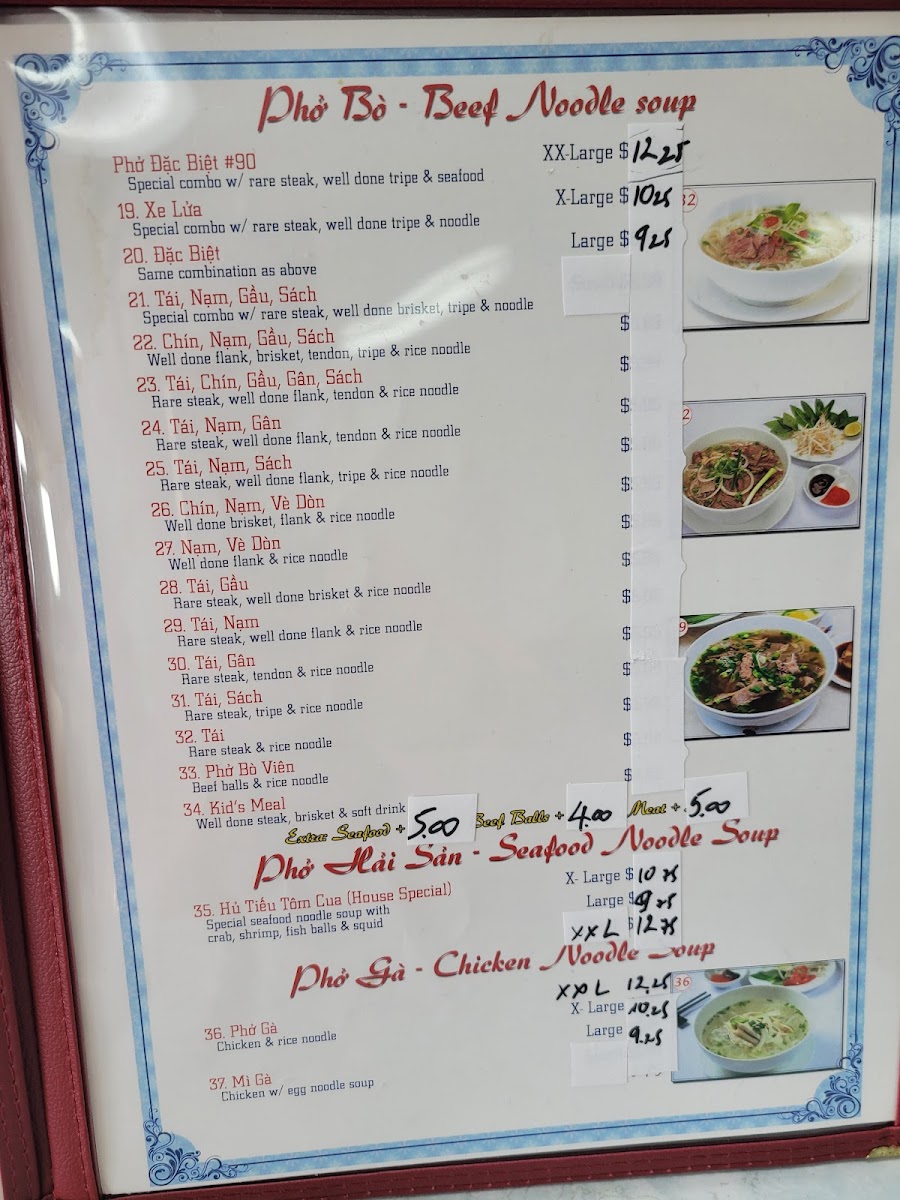 Phở Bò - Beef Noodle soup
Phở Đặc Biệt #90 XX-Large $12.25
Special combo w/ rare steak, well done tripe & seafood
19. Xe Lửa X-Large $10.25
Special combo w/ rare steak, well done tripe & noodle
20. Đặc Biệt Large $9.25
Same combination as above
21. Tái, Nạm, Gầu, Sách
Special combo w/ rare steak, well done brisket, tripe & noodle
$
22. Chín, Nạm, Gầu, Sách
Well done flank, brisket, tendon, tripe & rice noodle
$
23. Tái, Chín, Gầu, Gân, Sách
Rare steak, well done flank, tendon & rice noodle
$
24. Tái, Nạm, Gân
Rare steak, well done flank, tendon & rice noodle
$
25. Tái, Nạm, Sách
Rare steak, well done flank, tripe & rice noodle
$
26. Chín, Nạm, Vè Dòn
Well done brisket, flank & rice noodle
$
27. Nạm, Vè Dòn
Well done flank & rice noodle
$
28. Tái, Gầu
Rare steak, well done brisket & rice noodle
$
29. Tái, Nạm
Rare steak, well done flank & rice noodle
$
30. Tái, Gân
Rare steak, tendon & rice noodle
$
31. Tái, Sách
Rare steak, tripe & rice noodle
$
32. Tái
Rare steak & rice noodle
$
33. Phở Bò Viên
Beef balls & rice noodle
$
34. Kid's Meal
Well done steak, brisket & soft drink
Extra: Seafood + 5.00 Beef Balls + 4.00 Meat + 5.00
Phở Hải Sản - Seafood Noodle Soup
35. Hủ Tiếu Tôm Cua (House Special) X- Large $10.75
Special seafood noodle soup with Large $9.75
crab, shrimp, fish balls & squid XXL $12.75
Phở Gà - Chicken Noodle Soup
XXL 12.25
X- Large 10.25
36. Phở Gà Large 9.25
Chicken & rice noodle
37. Mì Gà
Chicken w/ egg noodle soup
32
2
9
36